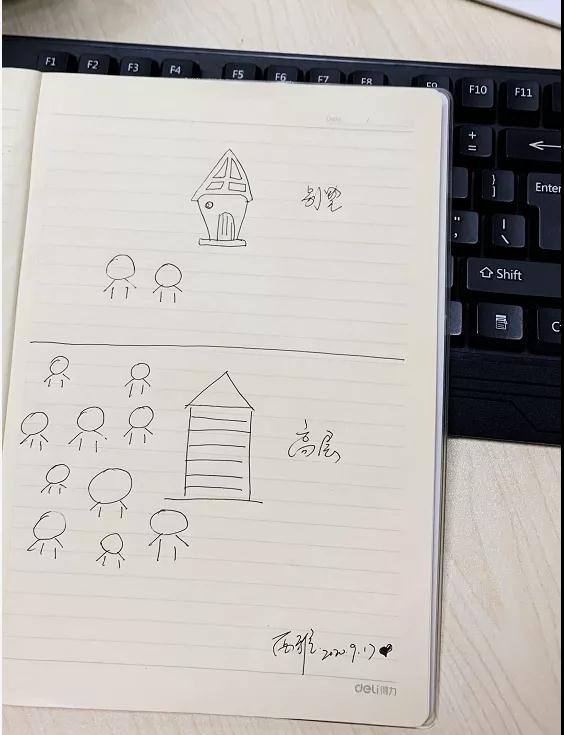 F1 F2 F3 F4 F5 F6 F7 F8 F9 F10 F11
+
=
←
}
]
Enter
"
,
|
\
⇧ Shift
Date /
别墅
高层
2020.9.17
deli得力